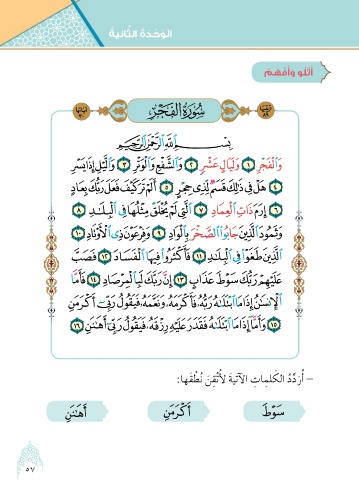 الوَحْدَةُ الثَّانِيَةُ
أَتْلُو وَأَفْهَمُ
سُورَةُ الفَجْرِ
بِسْمِ ٱللَّهِ ٱلرَّحْمَٰنِ ٱلرَّحِيمِ
وَٱلْفَجْرِ ١ وَلَيَالٍ عَشْرٍ ٢ وَٱلشَّفْعِ وَٱلْوَتْرِ ٣ وَٱلَّيْلِ إِذَا يَسْرِ
٤ هَلْ فِي ذَٰلِكَ قَسَمٌ لِّذِي حِجْرٍ ٥ أَلَمْ تَرَ كَيْفَ فَعَلَ رَبُّكَ بِعَادٍ
٦ إِرَمَ ذَاتِ ٱلْعِمَادِ ٧ ٱلَّتِي لَمْ يُخْلَقْ مِثْلُهَا فِي ٱلْبِلَٰدِ ٨
وَثَمُودَ ٱلَّذِينَ جَابُوا۟ ٱلصَّخْرَ بِٱلْوَادِ ٩ وَفِرْعَوْنَ ذِي ٱلْأَوْتَادِ ١٠
ٱلَّذِينَ طَغَوْا۟ فِي ٱلْبِلَٰدِ ١١ فَأَكْثَرُوا۟ فِيهَا ٱلْفَسَادَ ١٢ فَصَبَّ
عَلَيْهِمْ رَبُّكَ سَوْطَ عَذَابٍ ١٣ إِنَّ رَبَّكَ لَبِٱلْمِرْصَادِ ١٤ فَأَمَّا
ٱلْإِنسَٰنُ إِذَا مَا ٱبْتَلَىٰهُ رَبُّهُ فَأَكْرَمَهُ وَنَعَّمَهُ فَيَقُولُ رَبِّي أَكْرَمَنِ
١٥ وَأَمَّا إِذَا مَا ٱبْتَلَىٰهُ فَقَدَرَ عَلَيْهِ رِزْقَهُ فَيَقُولُ رَبِّي أَهَٰنَنِ ١٦
– أُرَدِّدُ الكَلِماتِ الآتِيَةَ لِأُتْقِنَ نُطْقَها:
سَوْطَ أَكْرَمَنِ أَهَٰنَنِ
٥٧